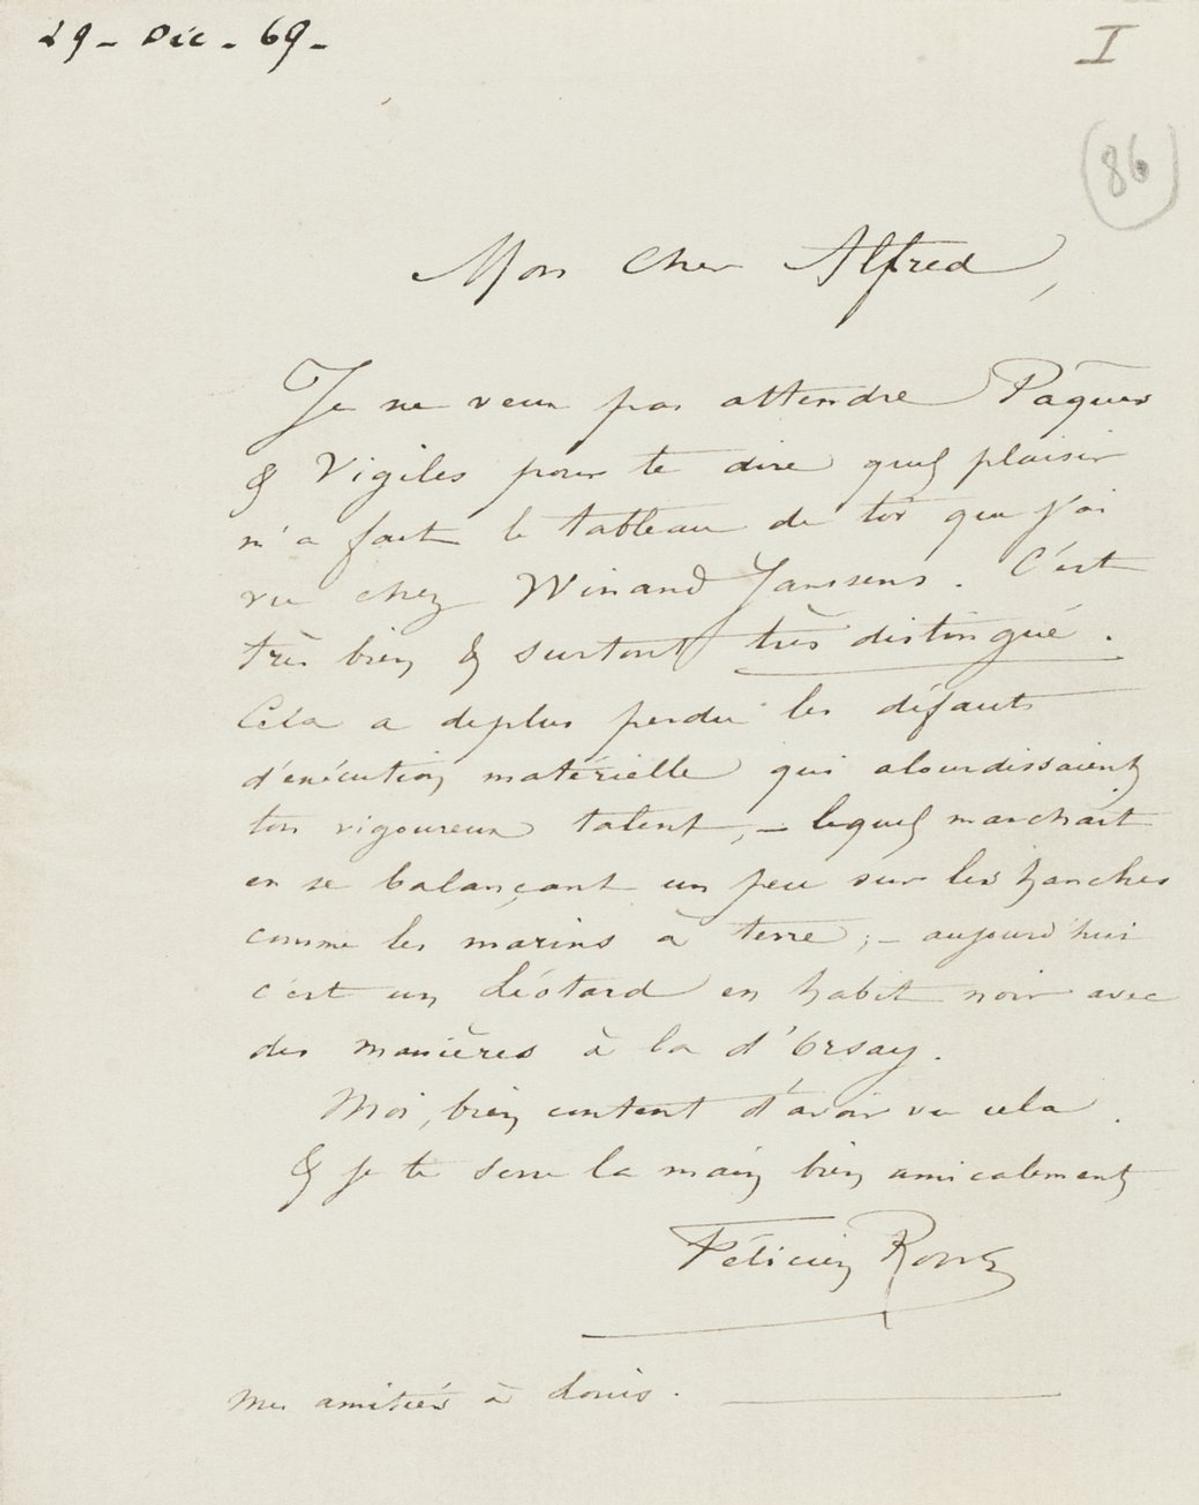 29 - Déc - 69 -
I
(86)
Mon cher Alfred,
Je ne veux pas attendre Pâques
& Vigiles pour te dire quel plaisir
m'a fait le tableau de toi que j'ai
vu chez Winand Janssens. C'est
très bien & surtout très distingué.
Cela a deplus perdu les défauts
d'exécution matérielle qui alourdissaient
ton vigoureux talent, - lequel marchait
en se balançant un peu sur les hanches
comme les marins à terre; - aujourd'hui
c'est un Léotard en habit noir avec
des manières à la d'Orsay.
Moi, bien content d'avoir vu cela.
& je te serre la main bien amicalement
Félicien Rops
Mes amitiés à Louis.